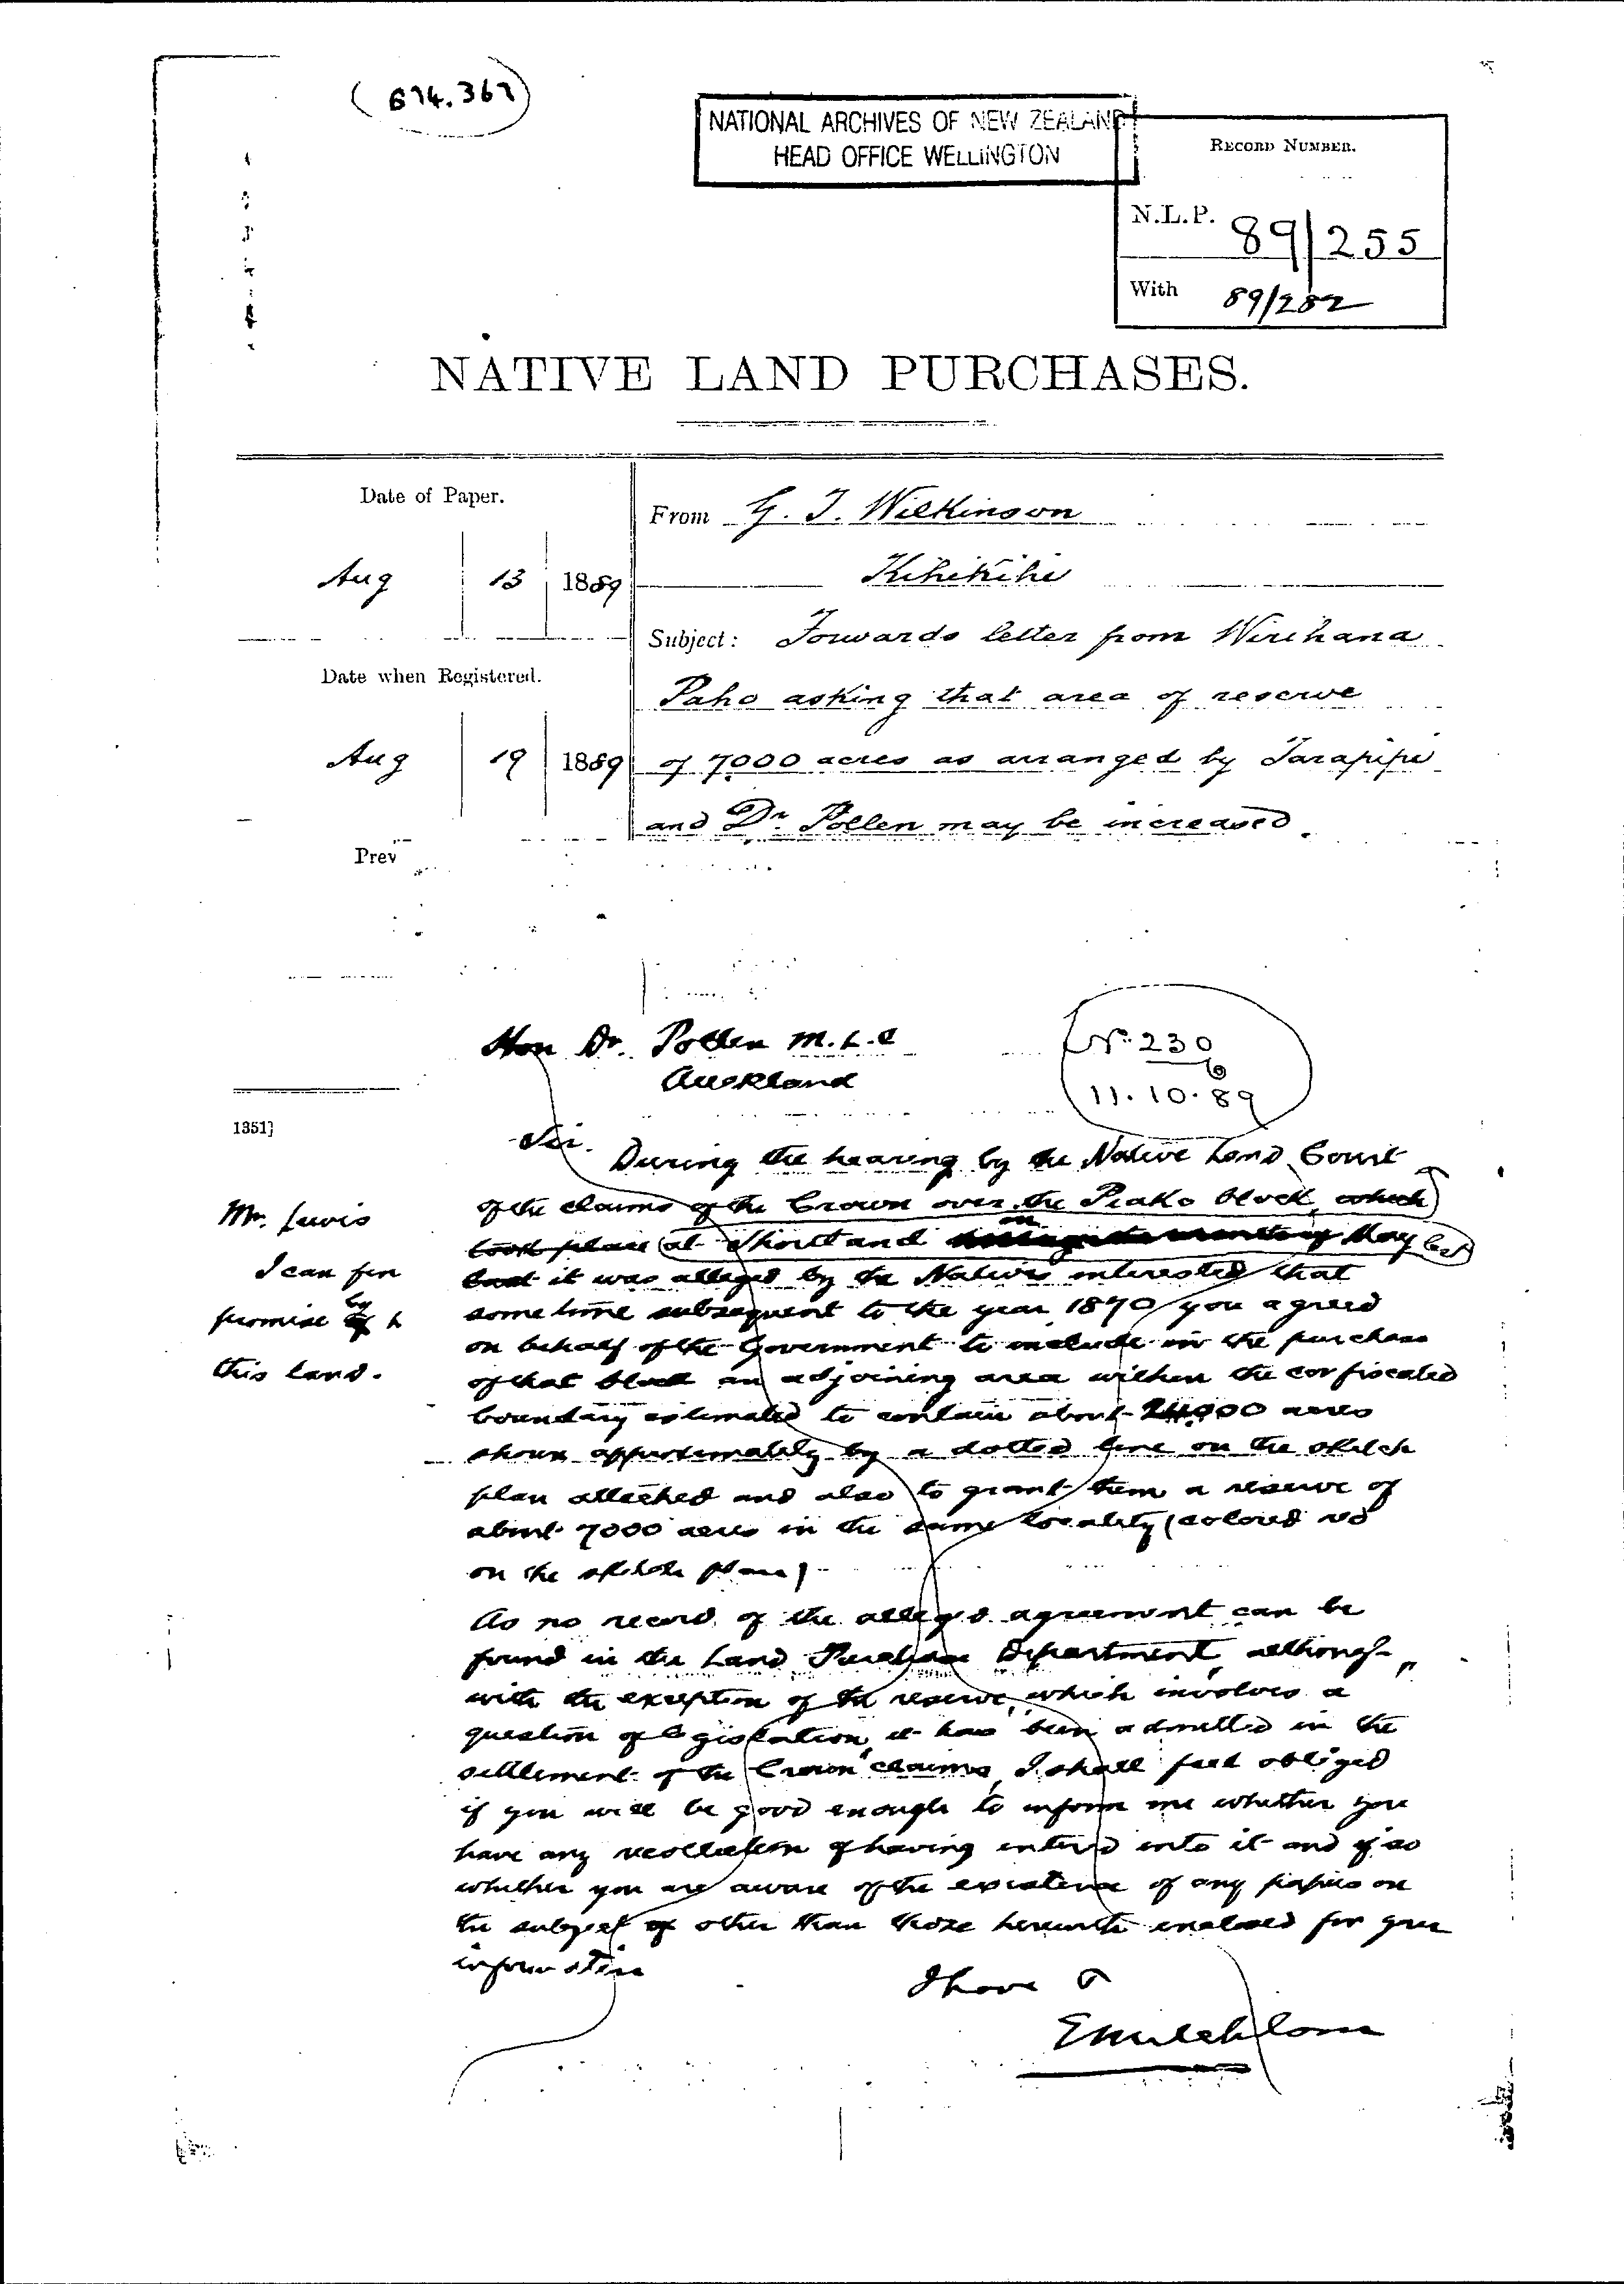 (614.367)
NATIONAL ARCHIVES OF NEW ZEALAND
HEAD OFFICE WELLINGTON
RECORD NUMBER.
N.L.P. 89/255
With 89/282
NATIVE LAND PURCHASES.
Date of Paper.
Aug 13 1889
Date when Registered.
Aug 19 1889
Prev
From G. T. Wilkinson
Kihikihi
Subject: Forwards letter from Wirihana
Paho asking that area of reserve
of 7000 acres as arranged by Tarapipi
and Dr. Pollen may be increased.
Hon Dr. Pollen M.L.C
Auckland
No. 230
11.10.89
1351]
Mr. Lewis
I can fin
promise by
this land.
Sir.
During the hearing by the Native Land Court
of the claims of the Crown over the Piako block, which
took place at Shortland in May last
it was alleged by the Natives interested that
some time subsequent to the year 1870 you agreed
on behalf of the Government to include in the purchase
of that block an adjoining area within the confiscated
boundary estimated to contain about acres
shown approximately by a dotted line on the sketch
plan attached and also to grant them a reserve of
about 7000 acres in the same locality (colored red
on the sketch plan)
As no record of the alleged agreement can be
found in the Land Purchase Department, although
with the exception of the reserve, which involves a
question of legislation, it has been admitted in the
settlement of the Crown claims, I shall feel obliged
if you will be good enough to inform me whether you
have any recollection of having entered into it and if so
whether you are aware of the existence of any papers on
the subject other than those herewith enclosed for your
information
I have &
E Mitchelson